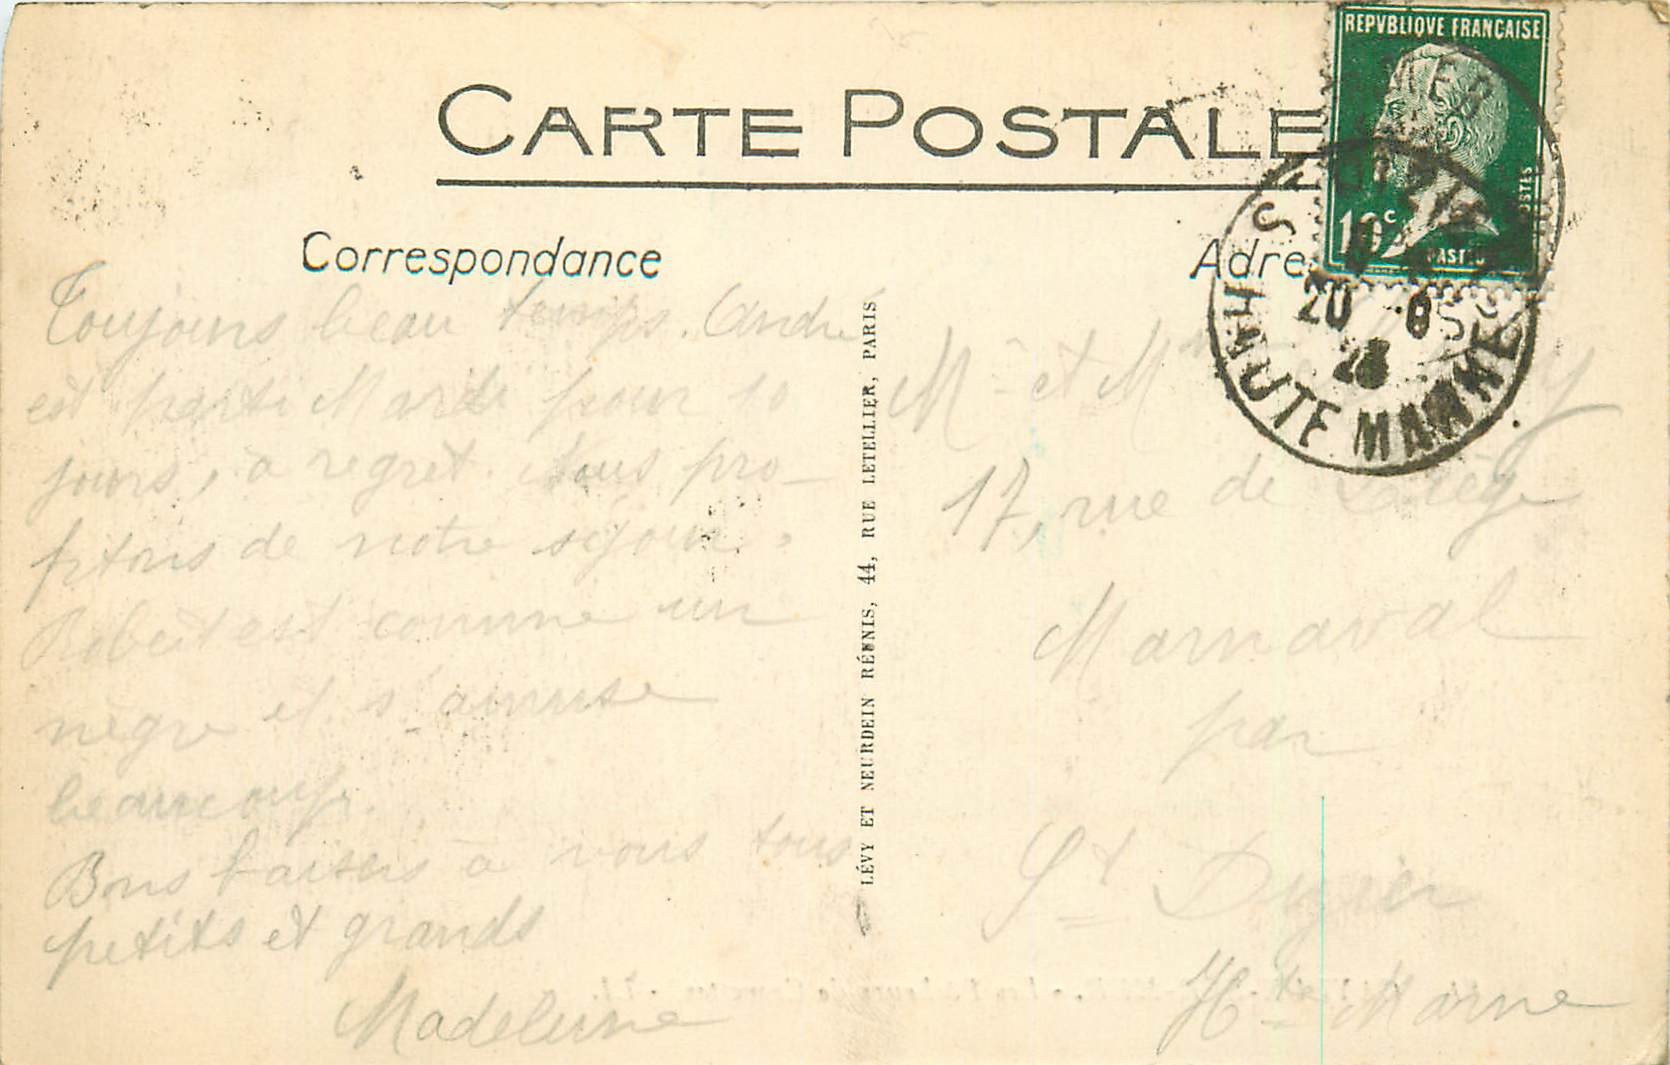 REPVBLIQVE FRANÇAISE
CARTE POSTALE
10c
POSTES
PASTEUR
Correspondance
Adre
20 - 8
HAUTE MARNE
Toujours beau temps. André
est parti Mardi pour 10
jours, à regret. Nous pro-
fitons de notre séjour.
Robert est comme un
nègre et s'amuse
beaucoup.
Bons baisers à vous tous
petits et grands
Madeleine
LÉVY ET NEURDEIN RÉUNIS, 44, RUE LETELLIER, PARIS
Mr et Mme
17, rue de Liège
Marnaval
par
St Dizier
Hte Marne